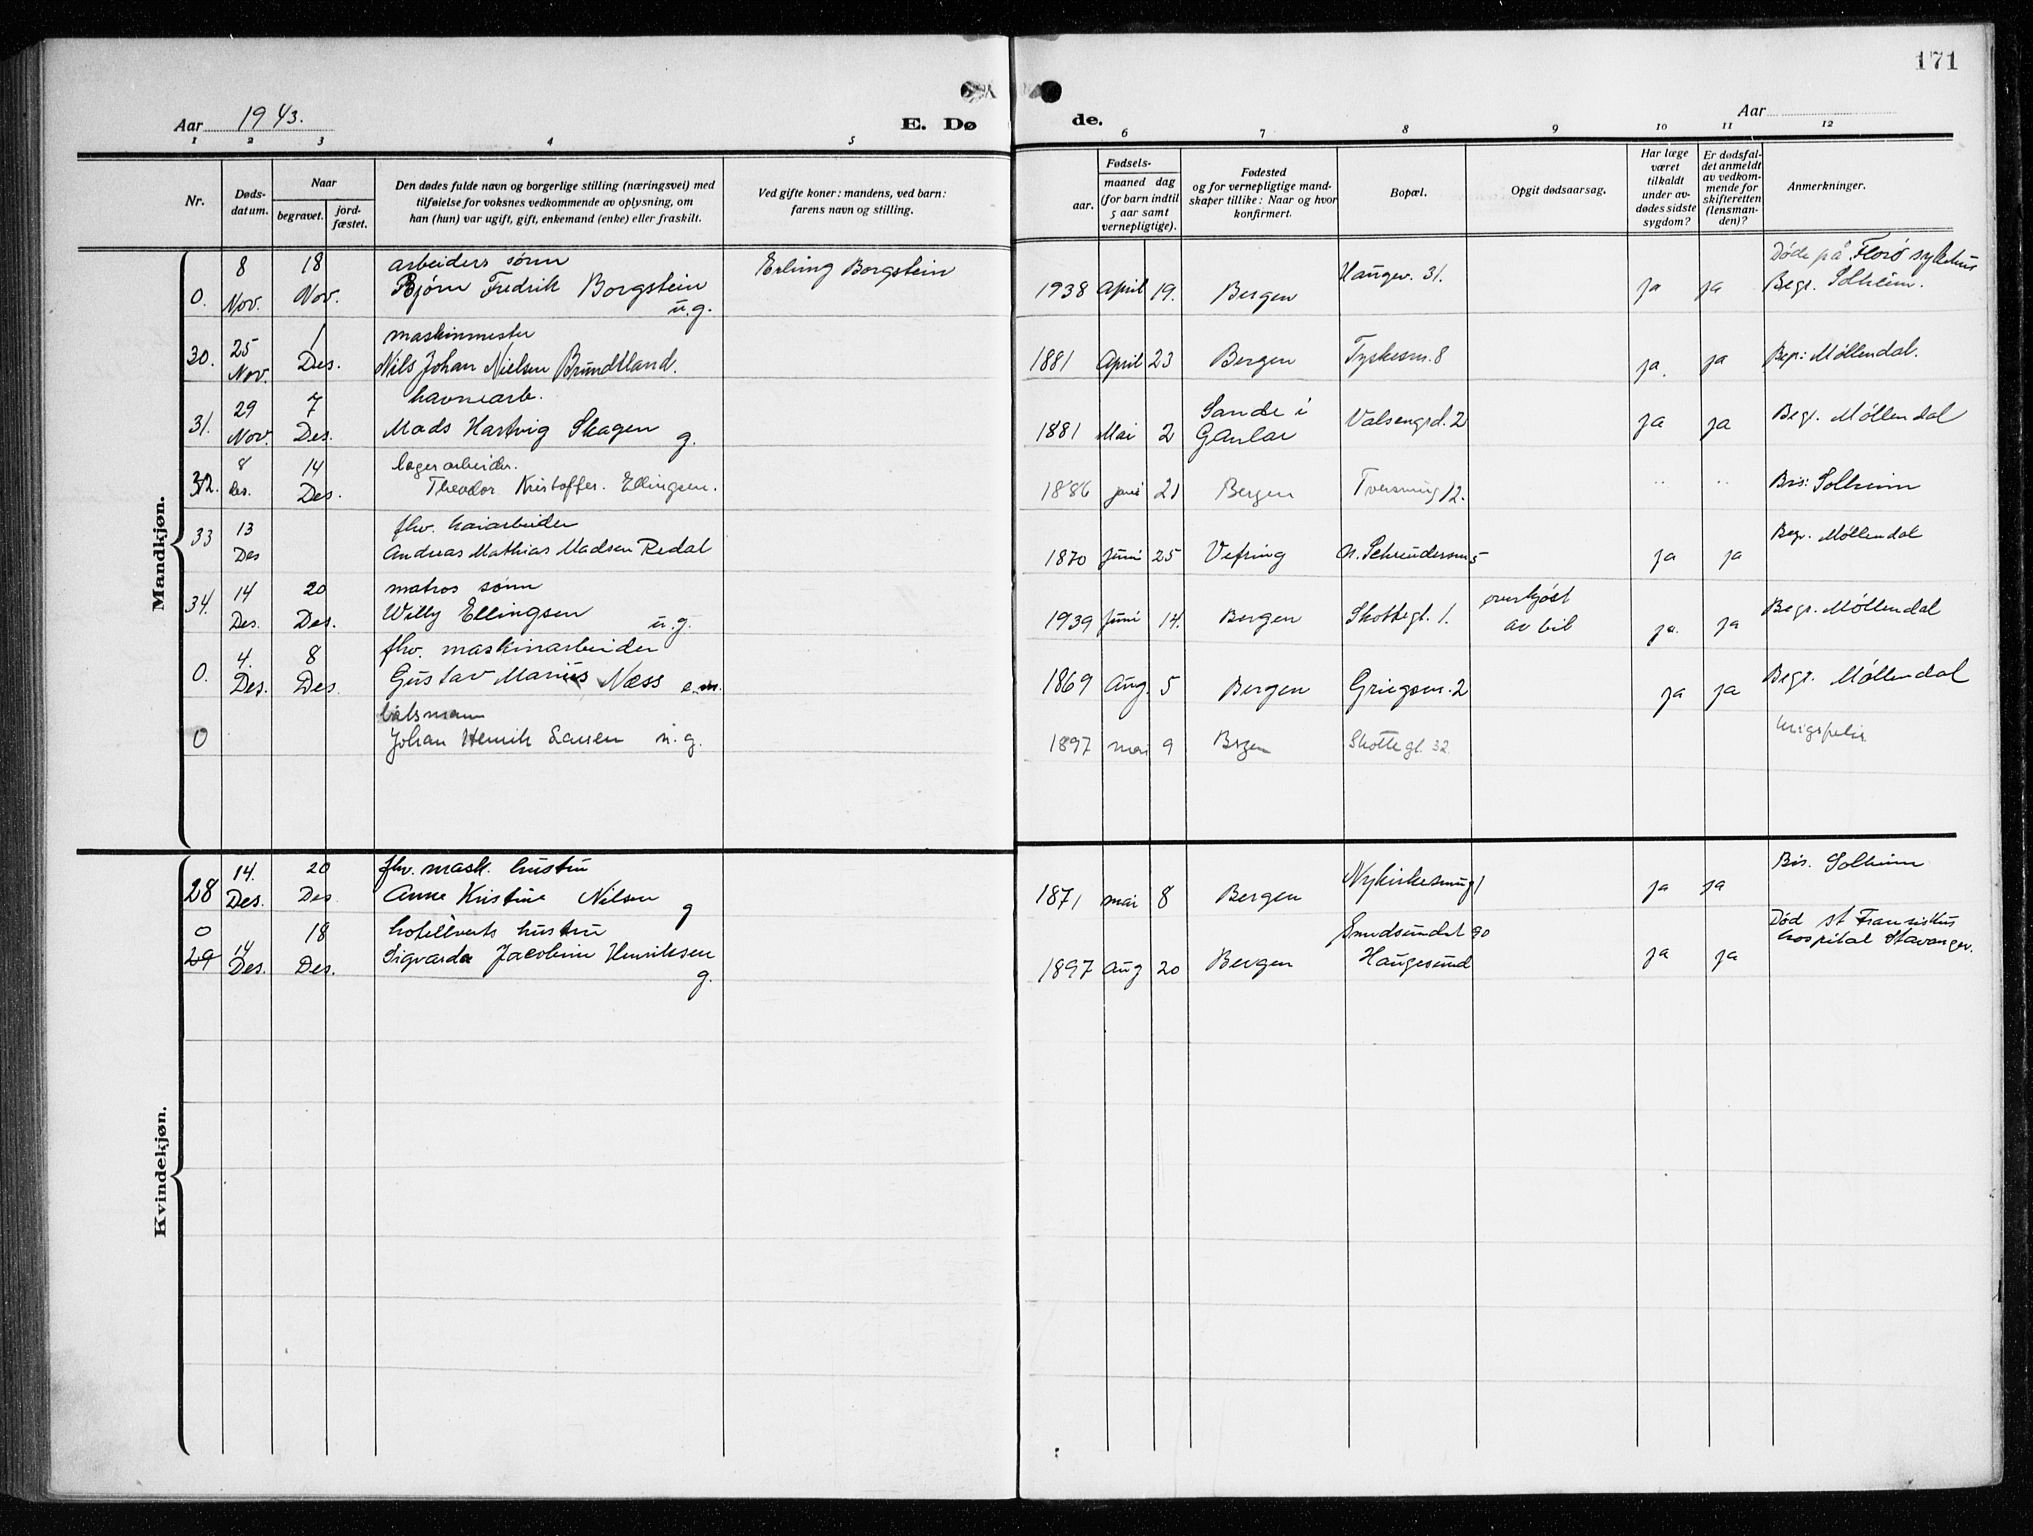 171
Aar 1943.
E. Dø
de.
Aar
1 2 3 4 5
6 7 8 9 10 11 12
Nr.
Døds-
datum.
Naar
begravet.
jord-
fæstet.
Den dødes fulde navn og borgerlige stilling (næringsvei) med
tilføielse for voksnes vedkommende av oplysning, om
han (hun) var ugift, gift, enkemand (enke) eller fraskilt.
Ved gifte koner: mandens, ved barn:
farens navn og stilling.
Fødsels-
aar.
maaned dag
(for barn indtil
5 aar samt
vernepligtige).
Fødested
og for vernepligtige mand-
skaper tillike: Naar og hvor
konfirmert.
Bopæl.
Opgit dødsaarsag.
Har læge
været
tilkaldt
under av-
dødes sidste
sygdom?
Er dødsfal-
det anmeldt
av vedkom-
mende for
skifteretten
(lensman-
den)?
Anmerkninger.
Mandkjøn.
8 18 arbeiders sønn Erling Borgstein Haugev. 31. Døde på Florø sykehus
0. Nov. Nov. Bjørn Fredrik Borgstein 1938 April 19. Bergen ja ja Begr. Solheim.
u.g.
25 1 maskinmester
30. Nov. Des. Nils Johan Nielsen Brundtland. 1881 April 23 Bergen Tyskesm. 8 ja. ja Begr: Møllendal.
29 7 havnearb. Sande i
31. Nov. Des. Mads Hartvig Skagen g. 1881 Mai 2 Gaular Valsengsd. 2 ja ja Begr. Møllendal
8 14 lagerarbeider.
32. Des. Des. Theodor Kristoffer. Ellingsen. 1886 juni 21 Bergen Tversmug 12. " " Bis: Solheim
13 fhv. havarbeider
33 Des Andreas Mathias Madsen Redal 1870 Juni 25 Vefring N. Schreudersm 5 ja ja Begr. Møllendal
14 20 matros sønn overkjøst
34. Des. Des. Willy Ellingsen u.g. 1939 Juni 14. Bergen Skottegt. 1. av bil ja. ja Begr. Møllendal
4. 8 fhv. maskinarbeider
0. Des. Des. Gustav Marius Næss e.m. 1869 Aug 5 Bergen Griegsm. 2 ja ja Begr. Møllendal
båtsmann
0 Johan Henrik Larsen u.g. 1897 mai 9 Brgen Skottegt. 32 krigsforlis
Kvindekjøn.
14. 20 fhv. mask. hustru Nykirkesmug 1 Bis. Solheim
28 Des. Des. Anne Kristine Nilsen g 1871 mai 8 Bergen ja ja
0 14 18 hotellverts hustru Smedsundet 90 Død St Fransiskus
29 Des. Des. Sigvarda Jacobine Henriksen g. 1897 Aug 20 Bergen Haugesund ja ja hospital Stavanger.